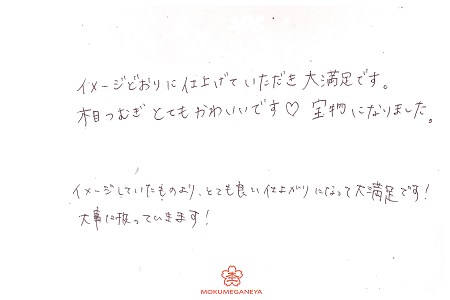 イメージどおりに仕上げていただき大満足です。
木目つむぎとてもかわいいです♡ 宝物になりました。
イメージしていたものより、とても良い仕上がりになって大満足です!
大事に扱っていきます!
MOKUMEGANEYA